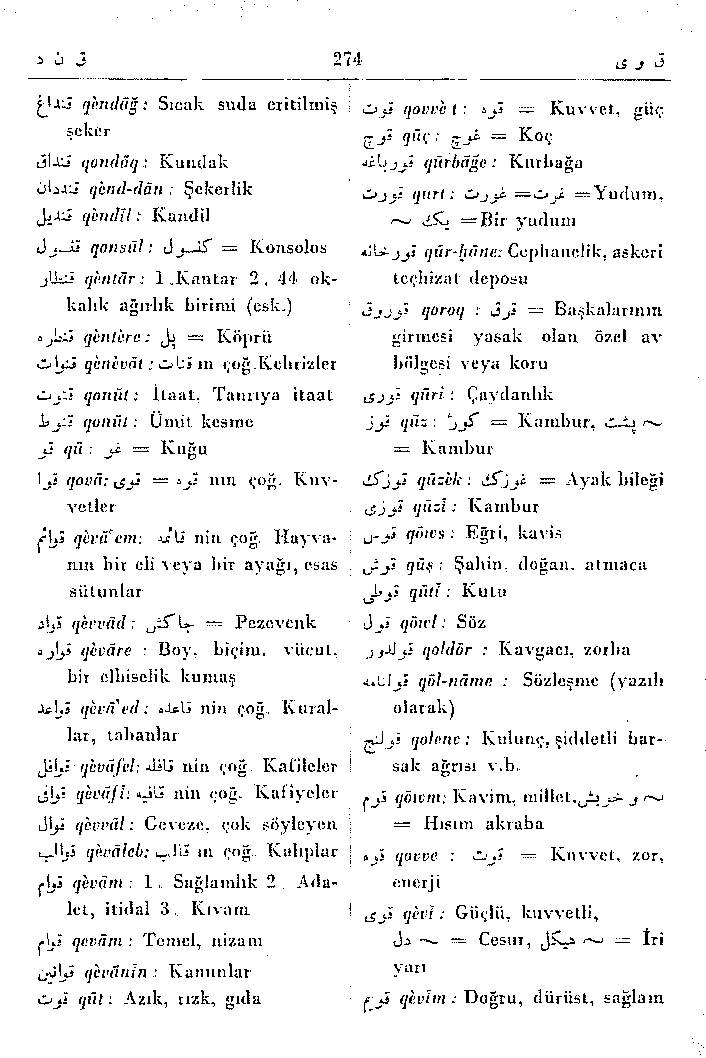 ق ن د 274 ق و ی
قنداغ qèndāğ: Sıcak suda eritilmiş
şeker
قنداق qondāq: Kundak
قنددان qènd-dān: Şekerlik
قندیل qèndîl: Kandil
قنسول qonsûl: کنسول = Konsolos
قنطار qèntār: 1.Kantar 2. 44 ok-
kalık ağırlık birimi (esk.)
قنطره qèntère: پل = Köprü
قنوات qènèvāt: قنات ın çoğ.Kehrizler
قنوت qonût: İtaat, Tanrıya itaat
قنوط qonût: Ümit kesme
قو qû: غو = Kuğu
قوا qovā: قوی = قوه nın çoğ. Kuv-
vetler
قوائم qèvā'em: قائمه nin çoğ. Hayva-
nın bir eli veya bir ayağı, esas
sütunlar
قواد qèvvād: جاکش = Pezevenk
قواره qèvāre: Boy, biçim, vücut,
bir elbiselik kumaş
قواعد qèvā'ed: قاعده nin çoğ. Kural-
lar, tabanlar
قوافل qèvāfel: قافله nin çoğ. Kafileler
قوافی qèvāfî: قافیه nin çoğ. Kafiyeler
قوال qèvvāl: Geveze, çok söyleyen
قوالب qèvāleb: قالب ın çoğ. Kalıplar
قوام qèvām: 1. Sağlamlık 2. Ada-
let, itidal 3. Kıvam
قوام qevām: Temel, nizam
قوانین qèvānîn: Kanunlar
قوت qût: Azık, rızk, gıda
قوت qovvèt: قوه = Kuvvet, güç
قوچ qûç: غوچ = Koç
قورباغه qûrbāğe: Kurbağa
قورت qurt: غورت = غرت = Yudum,
یک ~ = Bir yudum
قورخانه qûr-ḫāne: Cephanelik, askeri
teçhizat deposu
قوروق qoroq: قرق = Başkalarının
girmesi yasak olan özel av
bölgesi veya koru
قوری qûrî: Çaydanlık
قوز qûz: کوژ = Kambur, ~ پشت
= Kambur
قوزک qûzèk: غوزک = Ayak bileği
قوزی qûzî: Kambur
قوس qöws: Eğri, kavis
قوش qûş: Şahin, doğan, atmaca
قوطی qûtî: Kutu
قول qöwl: Söz
قولدور qoldör: Kavgacı, zorba
قولنامه qöl-nāme: Sözleşme (yazılı
olarak)
قولنج qolenc: Kulunç, şiddetli bar-
sak ağrısı v.b.
قوم qöwm: Kavim, millet, ~ و خویش
= Hısım akraba
قوه qovve: قوت = Kuvvet, zor,
enerji
قوی qèvî: Güçlü, kuvvetli,
~ دل = Cesur, ~ هیکل = İri
yarı
قویم qèvîm: Doğru, dürüst, sağlam